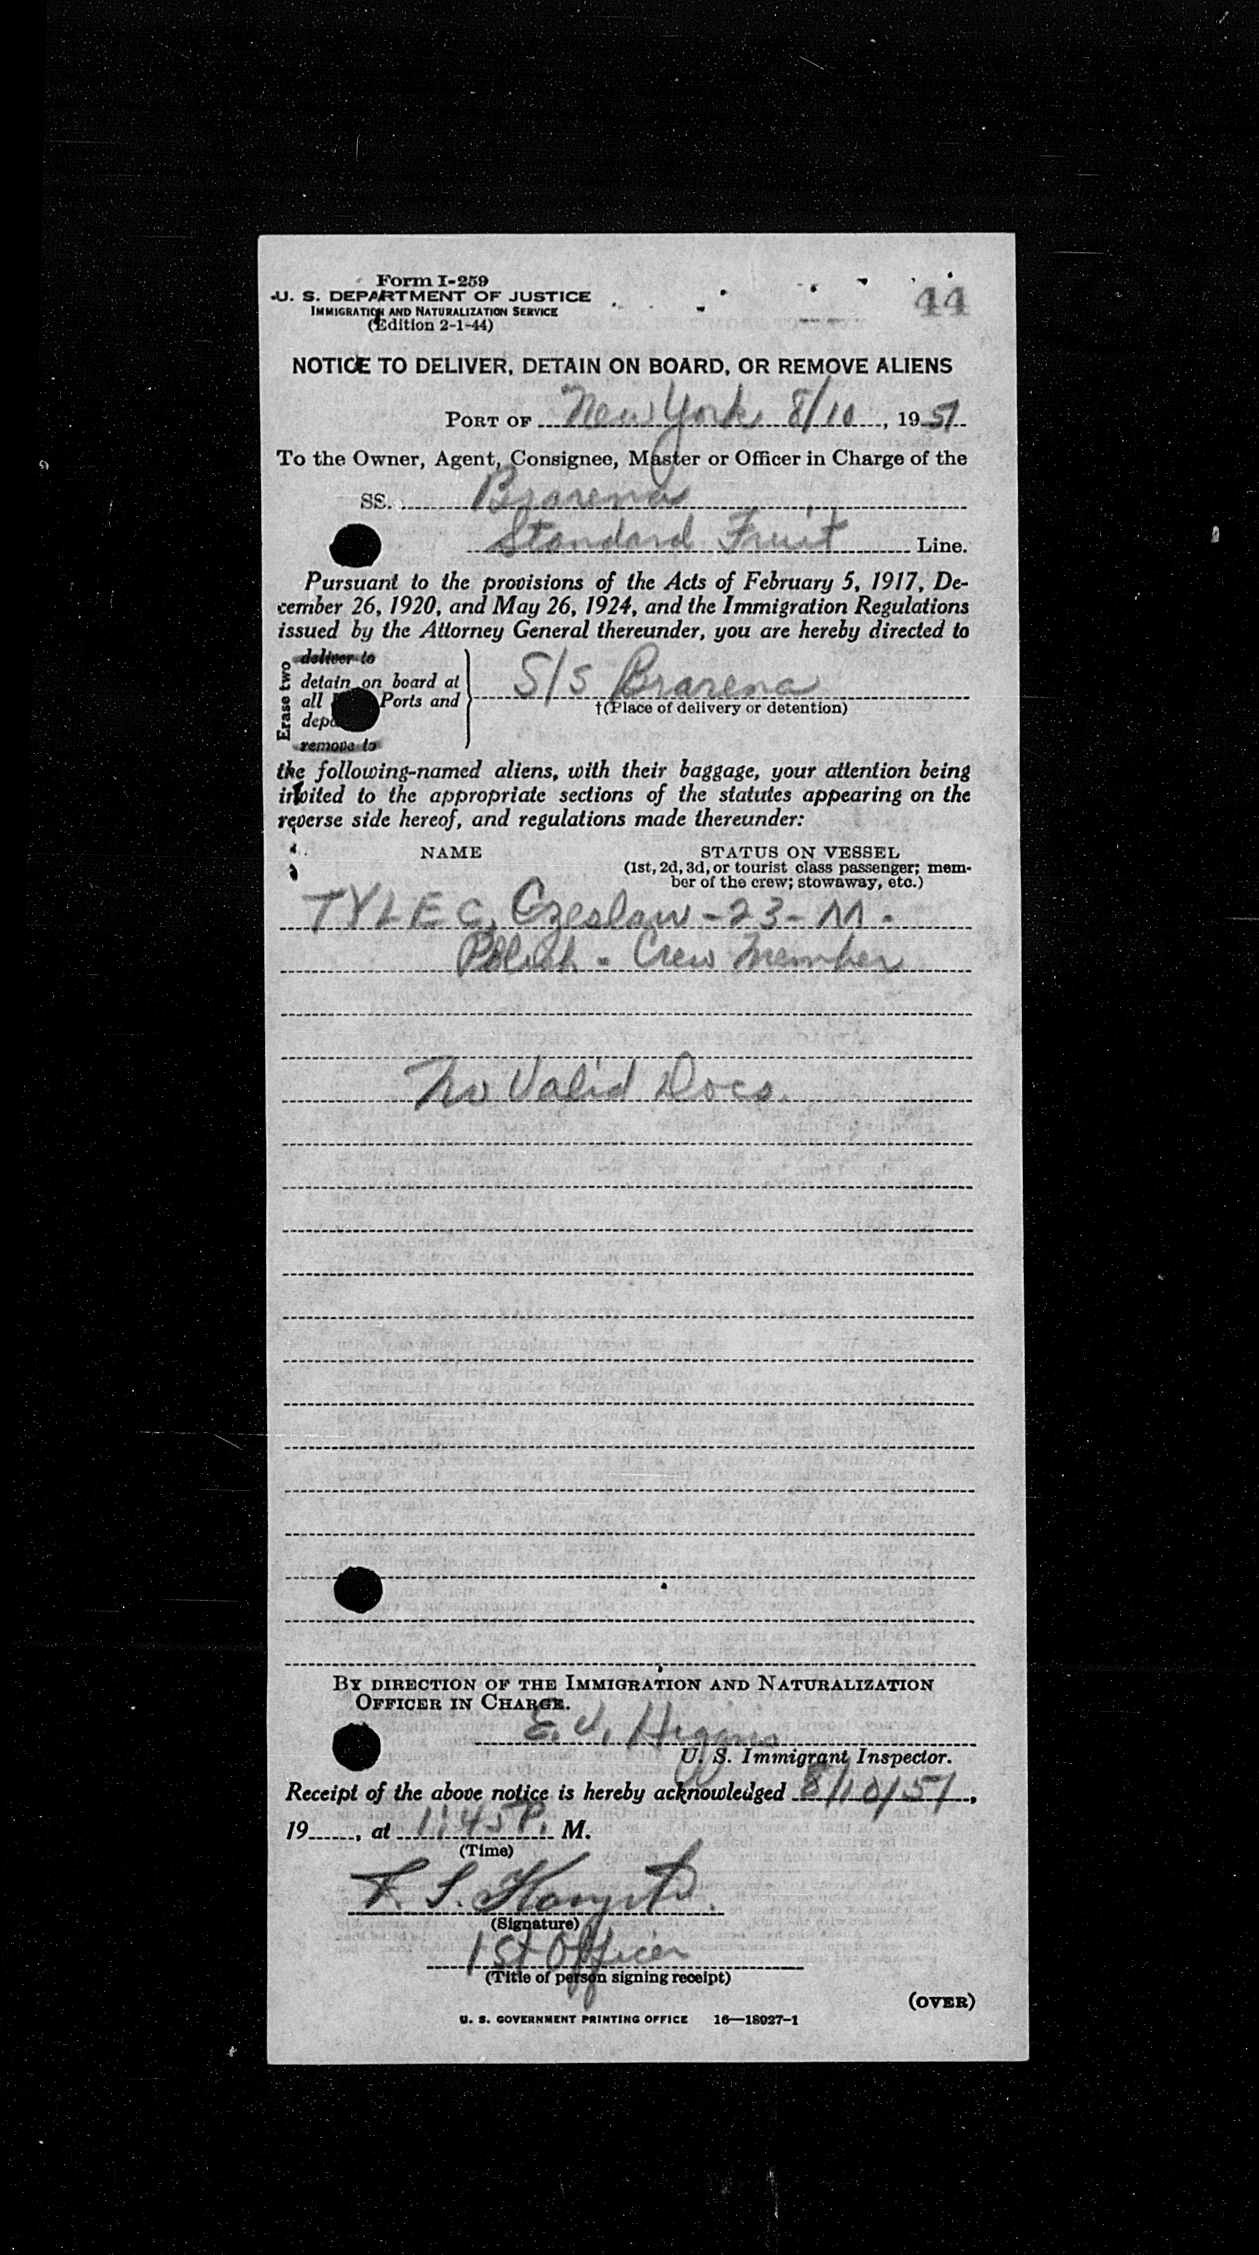 Form I-259
U. S. DEPARTMENT OF JUSTICE
IMMIGRATION AND NATURALIZATION SERVICE
(Edition 2-1-44)
44
NOTICE TO DELIVER, DETAIN ON BOARD, OR REMOVE ALIENS
PORT OF New York 8/10, 1951
To the Owner, Agent, Consignee, Master or Officer in Charge of the
SS. Brarena
Standard Fruit Line.
Pursuant to the provisions of the Acts of February 5, 1917, De-
cember 26, 1920, and May 26, 1924, and the Immigration Regulations
issued by the Attorney General thereunder, you are hereby directed to
Erase two
deliver to
detain on board at
all Ports and
remove to
S/S Brarena
†(Place of delivery or detention)
the following-named aliens, with their baggage, your attention being
invited to the appropriate sections of the statutes appearing on the
reverse side hereof, and regulations made thereunder:
NAME STATUS ON VESSEL
(1st, 2d, 3d, or tourist class passenger; mem-
ber of the crew; stowaway, etc.)
TYLEC, Czeslaw - 23 - M -
Polish - Crew Member
No Valid Docs.
BY DIRECTION OF THE IMMIGRATION AND NATURALIZATION
OFFICER IN CHARGE.
E. J. Higgins
U. S. Immigrant Inspector.
Receipt of the above notice is hereby acknowledged 8/10/51,
19......, at 1:45 P. M.
(Time)
(Signature)
1st Officer
(Title of person signing receipt)
(OVER)
U. S. GOVERNMENT PRINTING OFFICE 16—18027-1